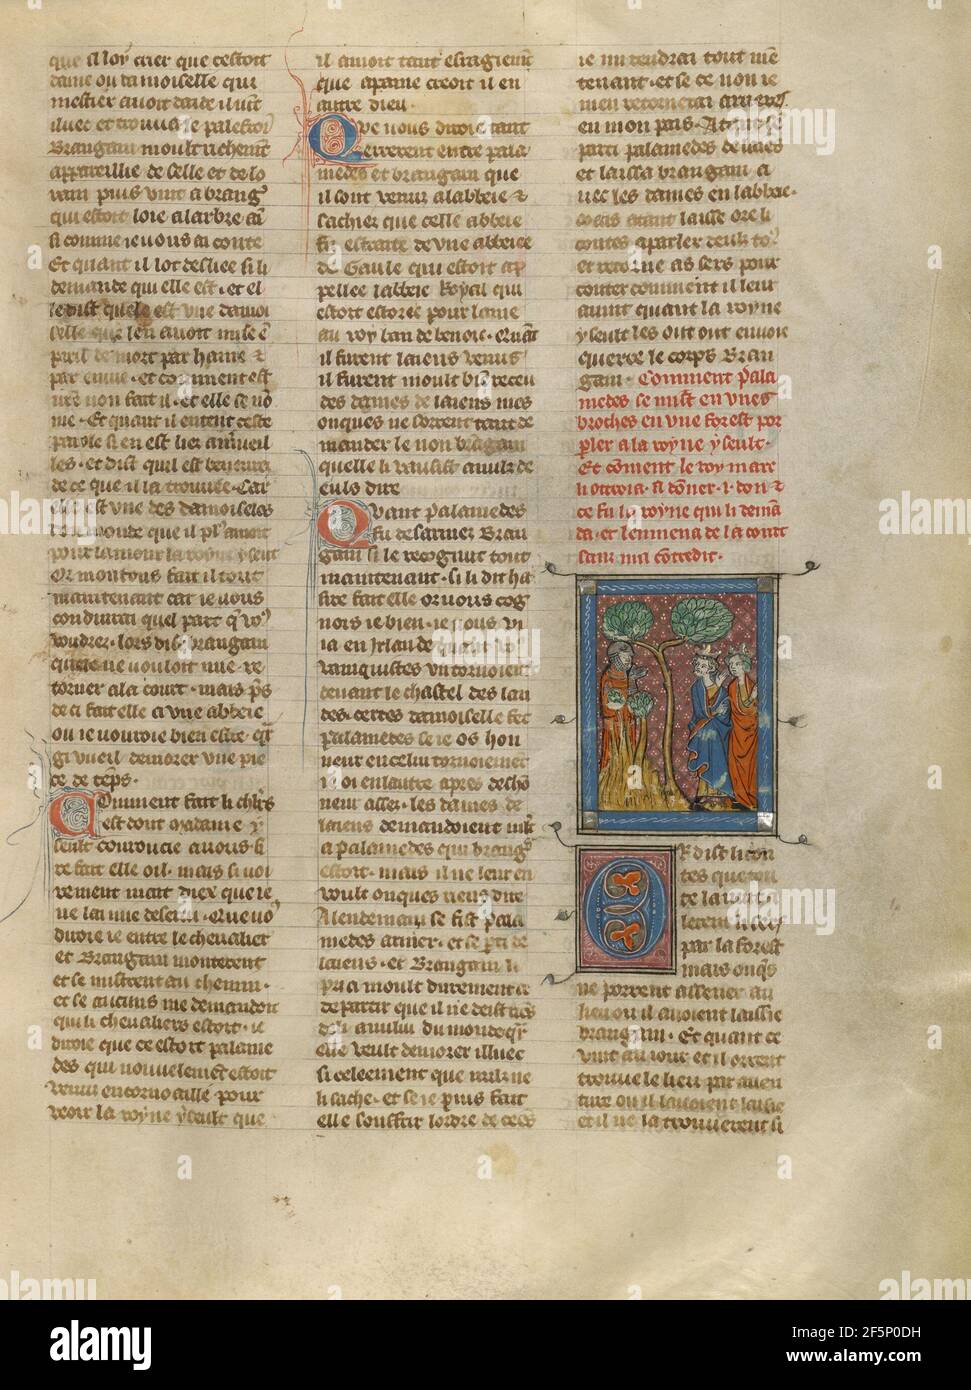 que il loy crier que cestoit
dame ou damoiselle qui
mestier avoit daide il vit
illuec et trouva le palefroi
Brangain moult richemt
appareillie de selle et de lo
rain puis vint a brang
qui estoit loie a larbre au
si comme ie vous ai conte
Et quant il lot desliee si li
demande qui elle est et el
le dist quele est une damoi
selle que len avoit mise e
peril de mort par haine z
par envie et comment est
me Et quant il entent ceste
parole si en est lier amveil
les et dist quil est beneure
de ce que il la trouvee Car
elle est une des damoiseles
du monde que il pl amoit
pour lamour la royne yseut
Or montons fait il tout
maintenant car ie vous
conduirai quel part q vo
voudrez lors dist brangain
quele ne vouloit mie re
torner a la court mais ps
de ci fait elle a une abbeie
ou ie vouroie bien estre
demorer une pie
ce de teps
Comment fait li chlrs
est dont madame y
seult couroucie a vous si
re fait elle oil mais si voi
rement mait diex que ie
ne lai mie deservi Que vo
diroie ie entre le chevalier
et Brangain monterent
et se mistrent au chemin
et se aucuns me demandoit
qui li chevaliers estoit ie
diroie que ce estoit palame
des qui nouvelement estoit
venu en cornoaille pour
veoir la royne yseult que
il amoit tant
que a paine creoit il en
autre dieu
Que vous diroie tant
errerent entre pala
medes et brangain que
il sont venu a labbeie z
sachier que celle abbeie
fu estraite de une abbeie
de Gaule qui estoit ap
pellee labbeie Royal qui
estoit estoree pour lame
au roy ban de benoic Quat
il furent laiens venus
il furent moult bie receu
des dames de laiens mes
onques ne sorent tant de
mander le non bragain
quelle li vausist
euls dire
Quant palamedes
fu desarmez Bran
gain si le recognut tout
maintenant si li dit ha
sire fait elle or vous cog
nois ie bien ie vous vi
ia en Irlande quant vo
vainquistes un tornoient
devant le chastel des lan
des certes damoiselle fet
palamedes se ie os hon
neur en celui tornoiemet
ioi en lautre apres desho
neur assez les dames de
laiens demandoient mlt
a palamedes qui brang
estoit mais il ne leur en
voult onques riens dire
A lendemain se fist pala
medes armer et se pti de
laiens et Brangain li
pria moult durement a
de partir que il ne deist
a nullui du monde que
elle veult demorer illuec
si celeement que nulz ne
li sache et se ie puis fait
elle souffrir lordre de cecs
ie mi rendrai tout me
tenant et se ce non ie
men retornerai arieres
en mon pais Atant se
parti palamedes de laiens
et laissa brangain a
vec les dames en labbeie
mais atant laisse ore li
contes a parler deulz to
et retorne as sers pour
conter comment il leur
avint quant la royne
yseult les ot envoie
querre le corps Bran
gain Comment Pala
medes se mist en unes
broches en une forest por
pler a la royne yseult
Et coment le roy marc
li otroia a doner i don z
ce fu la royne qui li dema
da et lenmena de la court
sanz nul contredit
Or dist li con
tes que tou
te la nuit a
lerent li serf
par la forest
mais onqs
ne porrent assener au
lieu ou il avoient laissie
brangain Et quant ce
vint au iour et il orrent
trouve le lieu par aven
ture ou il lavoient laissie
et il ne la trouverent si
alamy
Image ID: 2F5P0DH
www.alamy.com